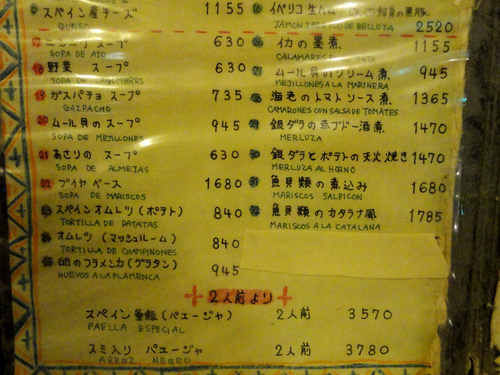 スペイン産チーズ 1155
QUESO
スープ 630
SOPA DE AJO
18 野菜 スープ 630
SOPA DE LEGUMBRES
19 ガスパチョ スープ 735
GAZPACHO
20 ムール貝の スープ 945
SOPA DE MEJILLONES
21 あさりの スープ 630
SOPA DE ALMEJAS
22 ブイヤベース 1680
SOPA DE MARISCOS
23 スペインオムレツ (ポテト) 840
TORTILLA DE PATATAS
24 オムレツ (マッシュルーム) 840
TORTILLA DE CHAMPINONES
25 卵のフラメンカ (グラタン) 945
HUEVOS A LA FLAMENCA
イベリコ 生ハム
JAMON IBERICO DE BELLOTA 2520
26 イカの墨煮 1155
CALAMARES
27 ムール貝のクリーム煮 945
MEJILLONES A LA MARINERA
28 海老のトマトソース煮 1365
CAMARONES CON SALSA DE TOMATES
29 銀ダラの赤ブドー酒煮 1470
MERLUZA
30 銀ダラとポテトの天火焼き 1470
MERLUZA AL HORNO
31 魚貝類の煮込み 1680
MARISCOS SALPICON
32 魚貝類のカタラナ風 1785
MARISCOS A LA CATALANA
2人前より
スペイン釜飯 (パエージャ) 2人前 3570
PAELLA ESPECIAL
スミ入り パエージャ 2人前 3780
ARROZ NEGRO